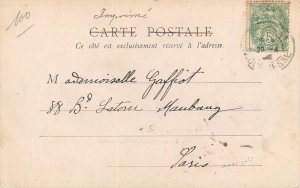 100
Imprimé
CARTE POSTALE
Ce côté est exclusivement réservé à l'adresse
Mademoiselle Gaffiot
88 Bd Latour Maubourg
Paris